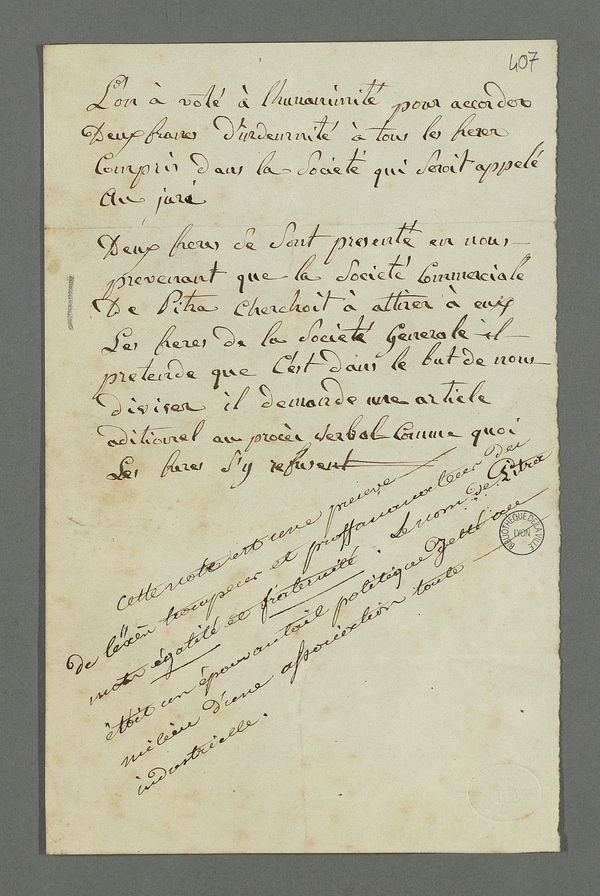 407
L'on à voté à l'hunanimité pour accorder
Deux francs d'indemnité à tous les freres
Compris dans la Société qui seroit appelé
Au juré
Deux freres se sont presenté en nous
prevenant que la Societé Commerciale
De Pitra cherchoit à attirer à eux
Les freres de la Société Generale il
pretende que C'est dans le but de nous
diviser il demande une article
aditionnel au procès verbal Comme quoi
Les freres s'y refusent
cette note est une preuve
de trompeur et proffanateur des
mots égalité et fraternité. Le nom de Pitra
était un épouvantail politique jetté au
milieu d'une association toute
industrielle.
BIBLIOTHEQUE DE LA VILLE
LYON